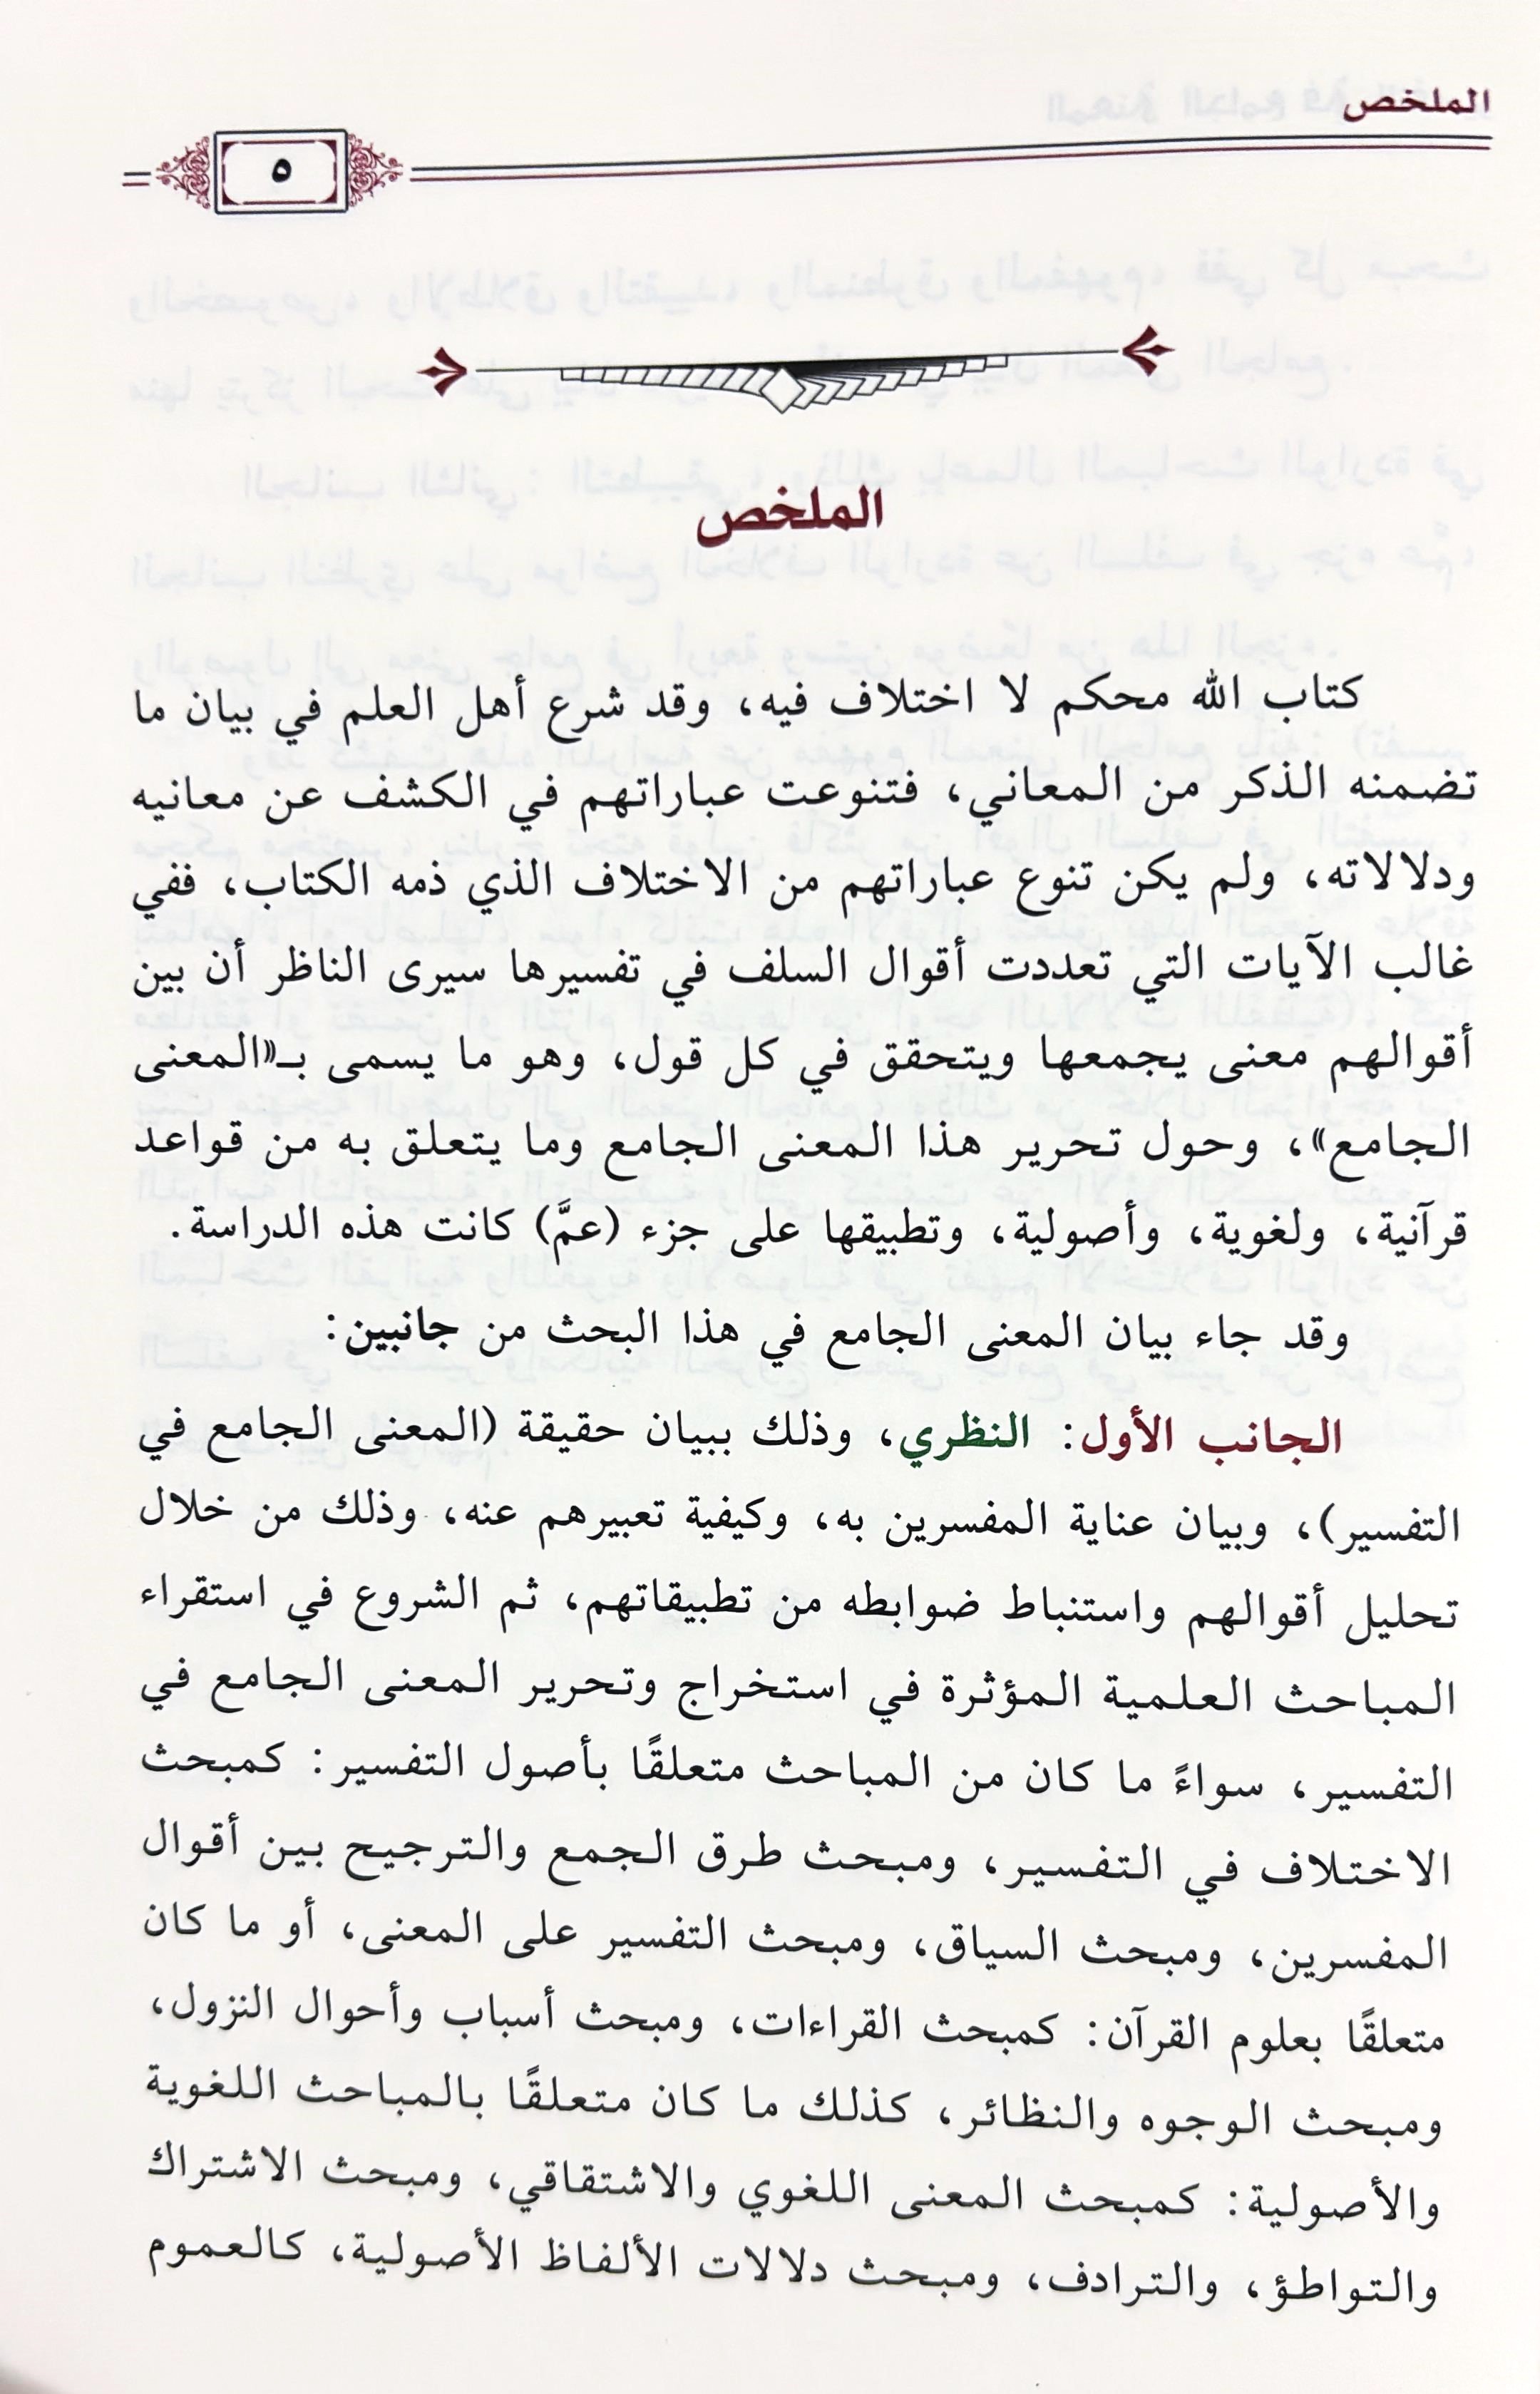 الملخص
٥
الملخص
كتاب الله محكم لا اختلاف فيه، وقد شرع أهل العلم في بيان ما
تضمنه الذكر من المعاني، فتنوعت عباراتهم في الكشف عن معانيه
ودلالاته، ولم يكن تنوع عباراتهم من الاختلاف الذي ذمه الكتاب، ففي
غالب الآيات التي تعددت أقوال السلف في تفسيرها سيرى الناظر أن بين
أقوالهم معنى يجمعها ويتحقق في كل قول، وهو ما يسمى بـ«المعنى
الجامع»، وحول تحرير هذا المعنى الجامع وما يتعلق به من قواعد
قرآنية، ولغوية، وأصولية، وتطبيقها على جزء (عمَّ) كانت هذه الدراسة.
وقد جاء بيان المعنى الجامع في هذا البحث من جانبين:
الجانب الأول: النظري، وذلك ببيان حقيقة (المعنى الجامع في
التفسير)، وبيان عناية المفسرين به، وكيفية تعبيرهم عنه، وذلك من خلال
تحليل أقوالهم واستنباط ضوابطه من تطبيقاتهم، ثم الشروع في استقراء
المباحث العلمية المؤثرة في استخراج وتحرير المعنى الجامع في
التفسير، سواءً ما كان من المباحث متعلقًا بأصول التفسير: كمبحث
الاختلاف في التفسير، ومبحث طرق الجمع والترجيح بين أقوال
المفسرين، ومبحث السياق، ومبحث التفسير على المعنى، أو ما كان
متعلقًا بعلوم القرآن: كمبحث القراءات، ومبحث أسباب وأحوال النزول،
ومبحث الوجوه والنظائر، كذلك ما كان متعلقًا بالمباحث اللغوية
والأصولية: كمبحث المعنى اللغوي والاشتقاقي، ومبحث الاشتراك
والتواطؤ، والترادف، ومبحث دلالات الألفاظ الأصولية، كالعموم